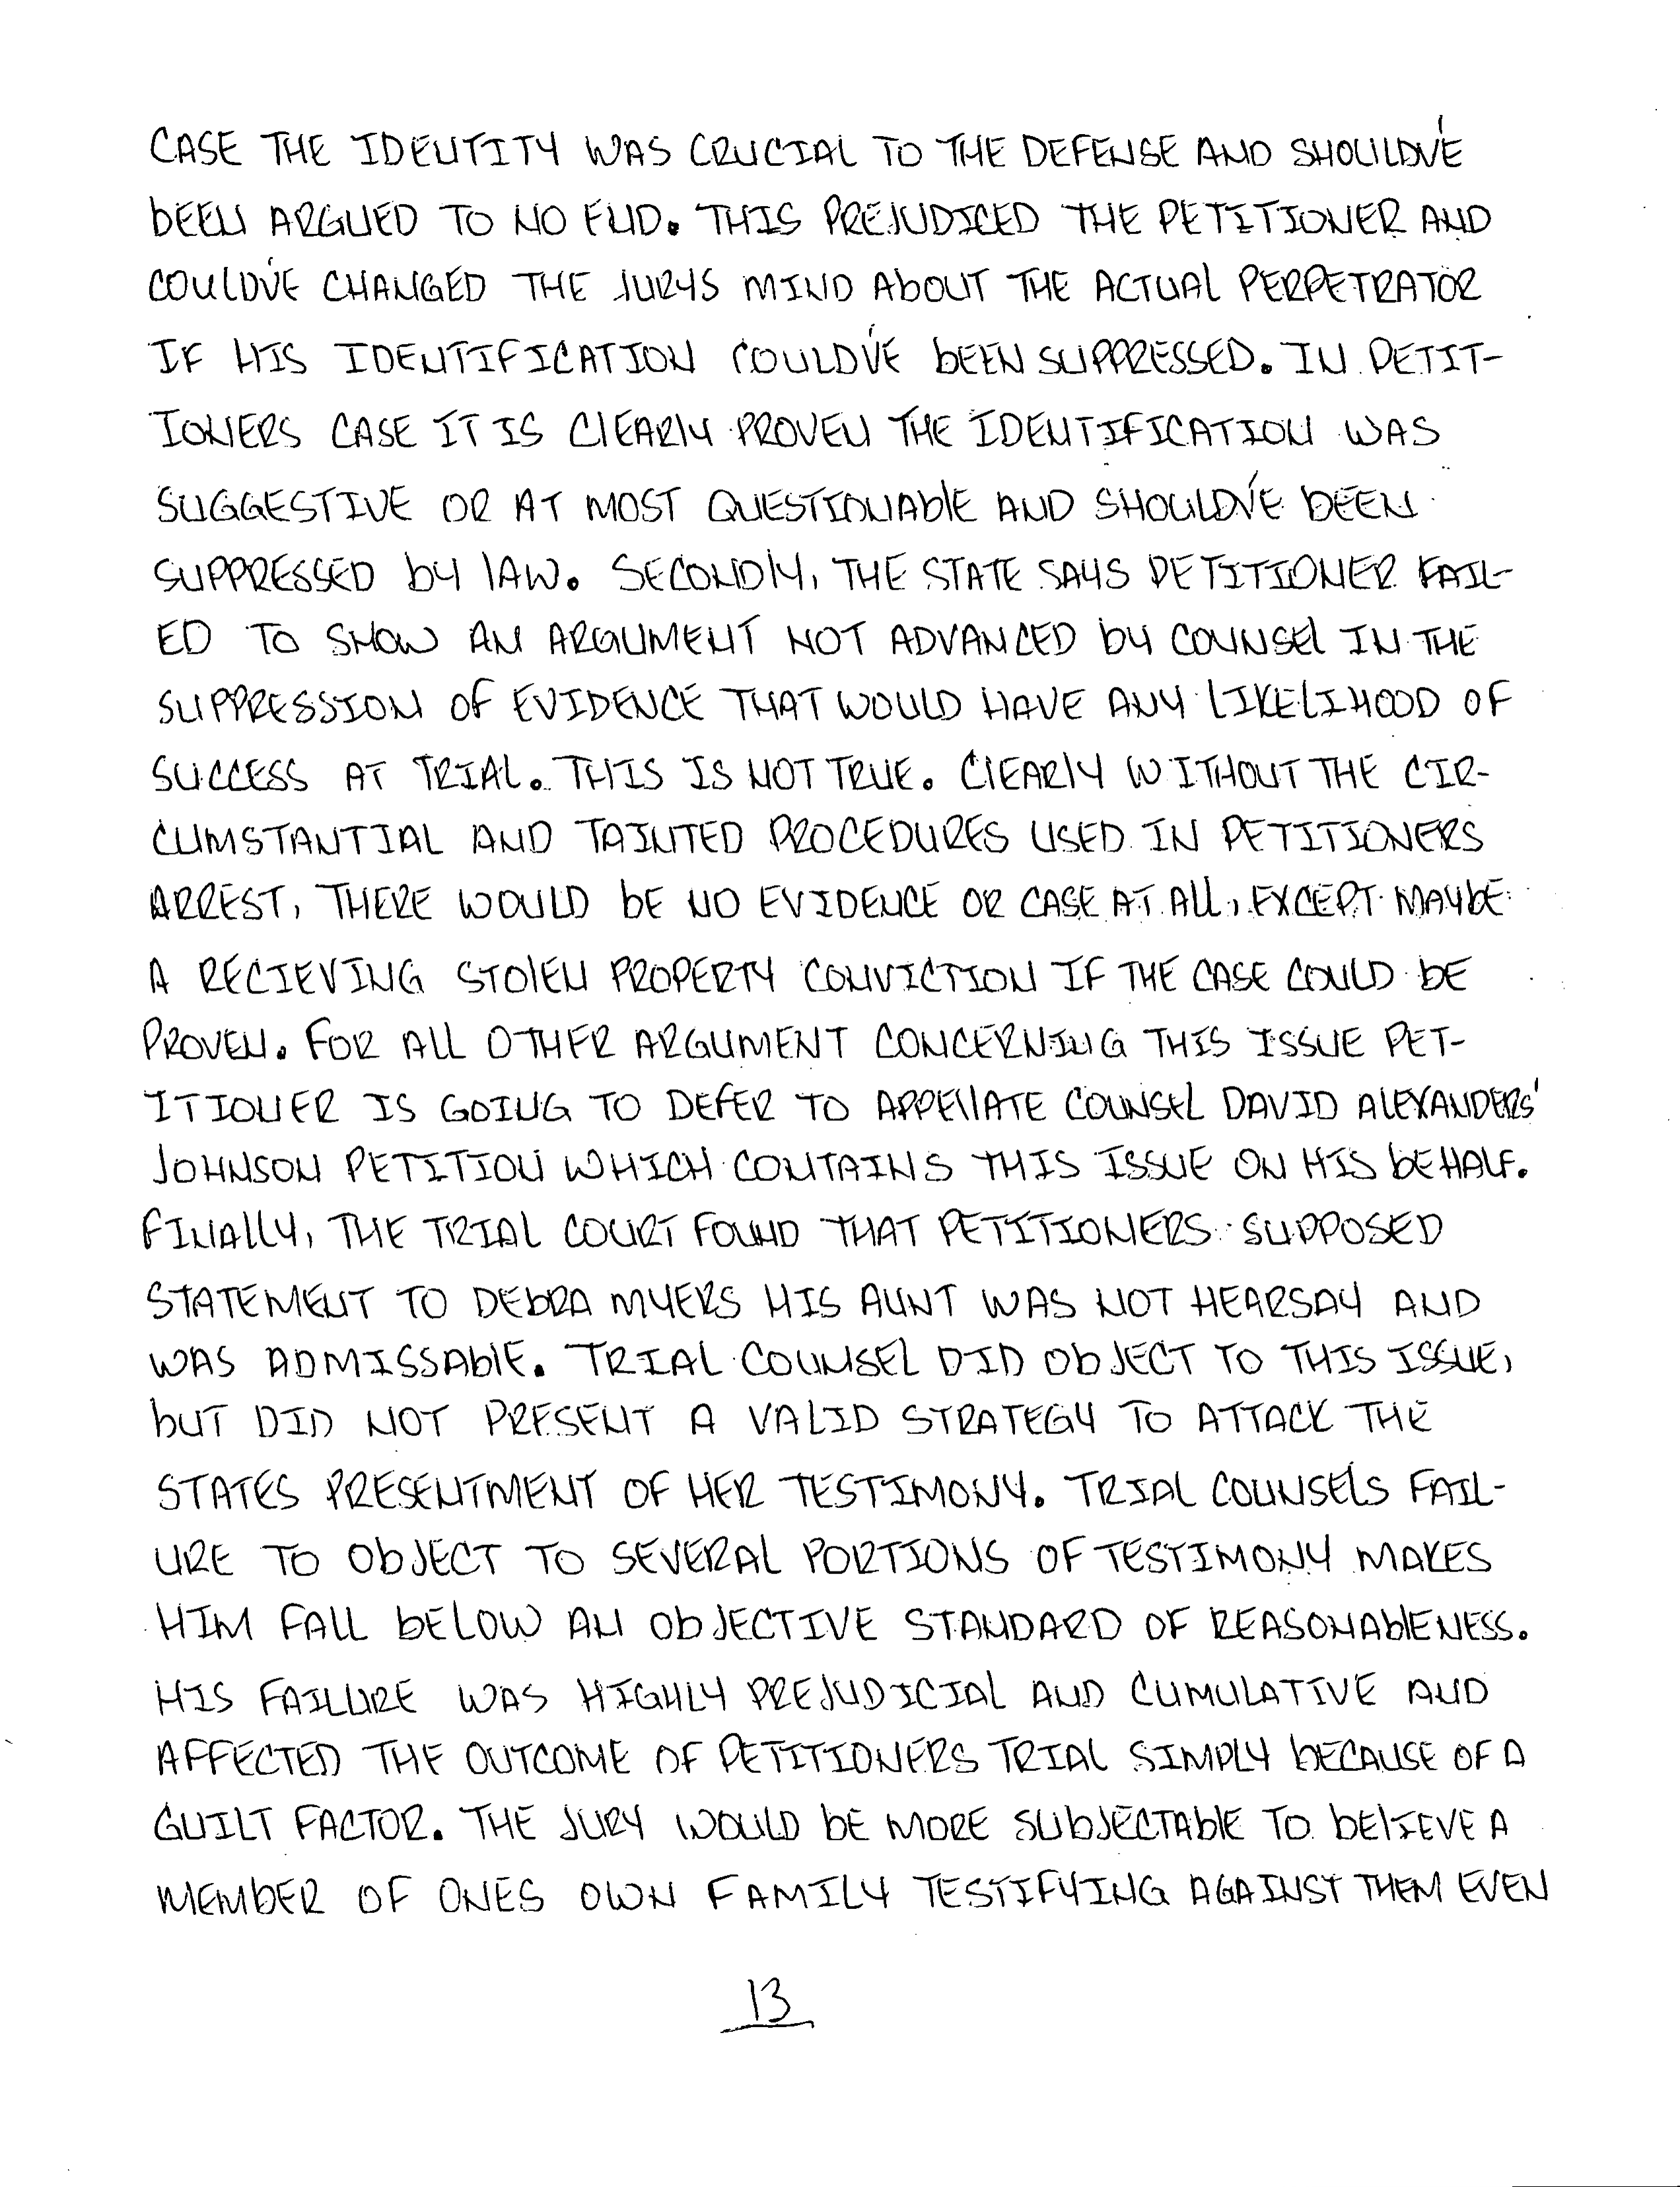 CASE THE IDENTITY WAS CRUCIAL TO THE DEFENSE AND SHOULDV'E
BEEN ARGUED TO NO END. THIS PREJUDICED THE PETITIONER AND
COULDV'E CHANGED THE JURYS MIND ABOUT THE ACTUAL PERPETRATOR
IF HIS IDENTIFICATION COULDV'E BEEN SUPPRESSED. IN PETIT-
IONERS CASE IT IS CLEARLY PROVEN THE IDENTIFICATION WAS
SUGGESTIVE OR AT MOST QUESTIONABLE AND SHOULDV'E BEEN
SUPPRESSED BY LAW. SECONDLY, THE STATE SAYS PETITIONER FAIL-
ED TO SHOW AN ARGUMENT NOT ADVANCED BY COUNSEL IN THE
SUPPRESSION OF EVIDENCE THAT WOULD HAVE ANY LIKELIHOOD OF
SUCCESS AT TRIAL. THIS IS NOT TRUE. CLEARLY WITHOUT THE CIR-
CUMSTANTIAL AND TAINTED PROCEDURES USED IN PETITIONERS
ARREST, THERE WOULD BE NO EVIDENCE OR CASE AT ALL, EXCEPT MAYBE
A RECIEVING STOLEN PROPERTY CONVICTION IF THE CASE COULD BE
PROVEN. FOR ALL OTHER ARGUMENT CONCERNING THIS ISSUE PET-
ITIONER IS GOING TO DEFER TO APPELLATE COUNSEL DAVID ALEXANDERS'
JOHNSON PETITION WHICH CONTAINS THIS ISSUE ON HIS BEHALF.
FINALLY, THE TRIAL COURT FOUND THAT PETITIONERS SUPPOSED
STATEMENT TO DEBRA MYERS HIS AUNT WAS NOT HEARSAY AND
WAS ADMISSABLE. TRIAL COUNSEL DID OBJECT TO THIS ISSUE,
BUT DID NOT PRESENT A VALID STRATEGY TO ATTACK THE
STATES PRESENTMENT OF HER TESTIMONY. TRIAL COUNSELS FAIL-
URE TO OBJECT TO SEVERAL PORTIONS OF TESTIMONY MAKES
HIM FALL BELOW AN OBJECTIVE STANDARD OF REASONABLENESS.
HIS FAILURE WAS HIGHLY PREJUDICIAL AND CUMULATIVE AND
AFFECTED THE OUTCOME OF PETITIONERS TRIAL SIMPLY BECAUSE OF A
GUILT FACTOR. THE JURY WOULD BE MORE SUBJECTABLE TO BELIEVE A
MEMBER OF ONES OWN FAMILY TESTIFYING AGAINST THEM EVEN
13